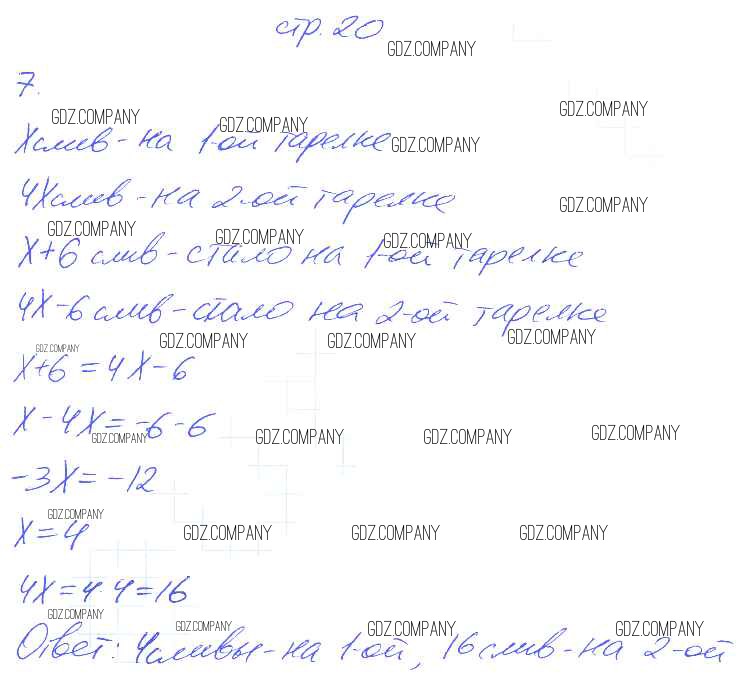 стр. 20
GDZ.COMPANY
7.
GDZ.COMPANY GDZ.COMPANY GDZ.COMPANY
X слив - на 1-ой тарелке GDZ.COMPANY
4X слив - на 2-ой тарелке GDZ.COMPANY
GDZ.COMPANY GDZ.COMPANY GDZ.COMPANY
X+6 слив - стало на 1-ой тарелке
4X-6 слив - стало на 2-ой тарелке
GDZ.COMPANY GDZ.COMPANY GDZ.COMPANY GDZ.COMPANY
X+6 = 4X-6
X-4X = -6-6
GDZ.COMPANY GDZ.COMPANY GDZ.COMPANY GDZ.COMPANY
-3X = -12
GDZ.COMPANY
X=4 GDZ.COMPANY GDZ.COMPANY GDZ.COMPANY
4X=4·4=16
GDZ.COMPANY GDZ.COMPANY GDZ.COMPANY GDZ.COMPANY
Ответ: 4 сливы - на 1-ой, 16 слив - на 2-ой